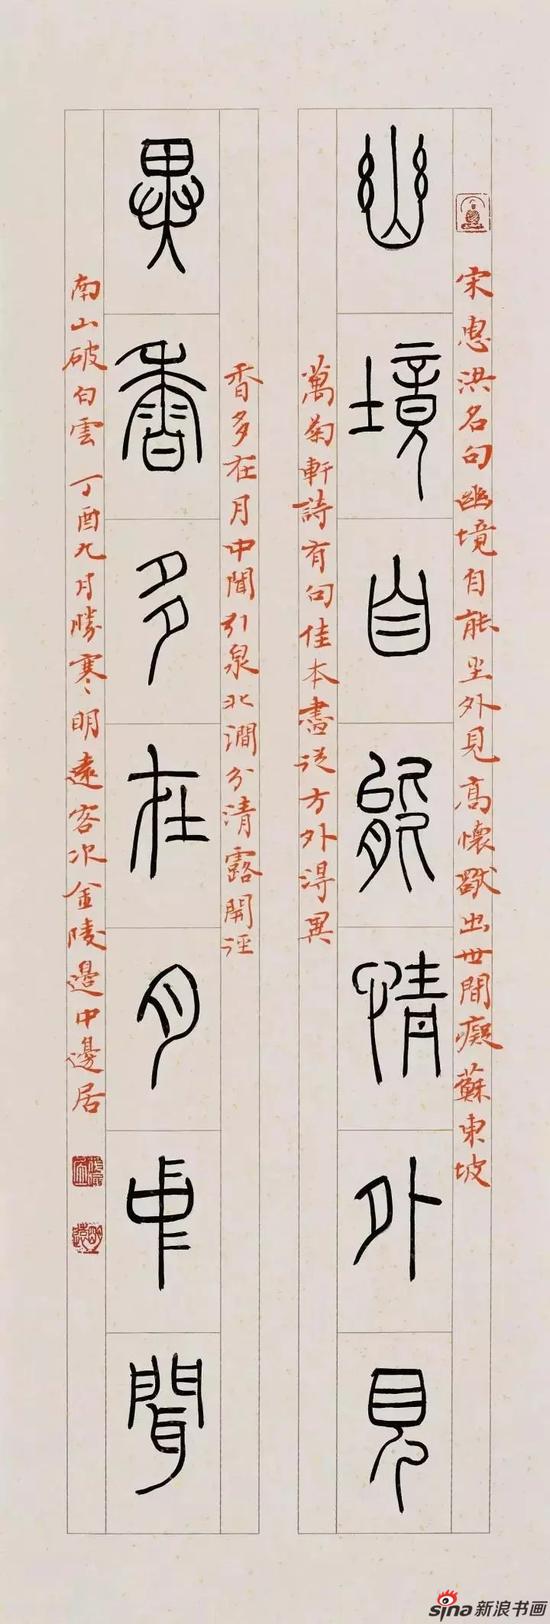 宋惠洪名句幽境自能外見高懷出世間癡蘇東坡
幽境自能情外見
萬菊軒詩有句佳本盡從方外得異
香多在月中聞引泉北澗分清露開逕
異香多在月中聞
南山破白雲 丁酉九月勝寒明遠客次金陵邊中邊居
sina 新浪书画